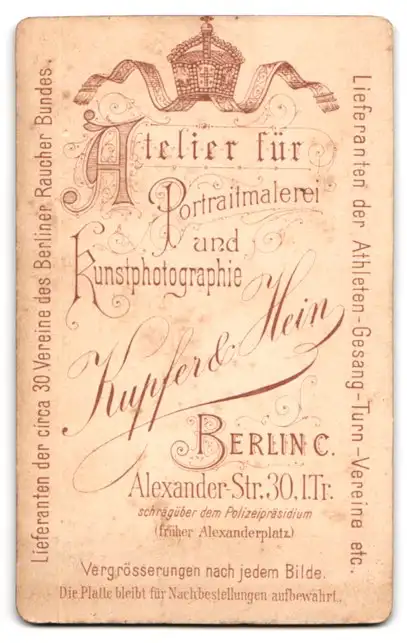 Atelier für
Portraitmalerei
und
Kunstphotographie
Kupfer & Hein
BERLIN C.
Alexander-Str. 30. I. Tr.
schrägüber dem Polizeipräsidium
(früher Alexanderplatz)
Vergrösserungen nach jedem Bilde.
Die Platte bleibt für Nachbestellungen aufbewahrt.
Lieferanten der circa 30 Vereine des Berliner Raucher Bundes.
Lieferanten der Athleten-Gesang-Turn-Vereine etc.